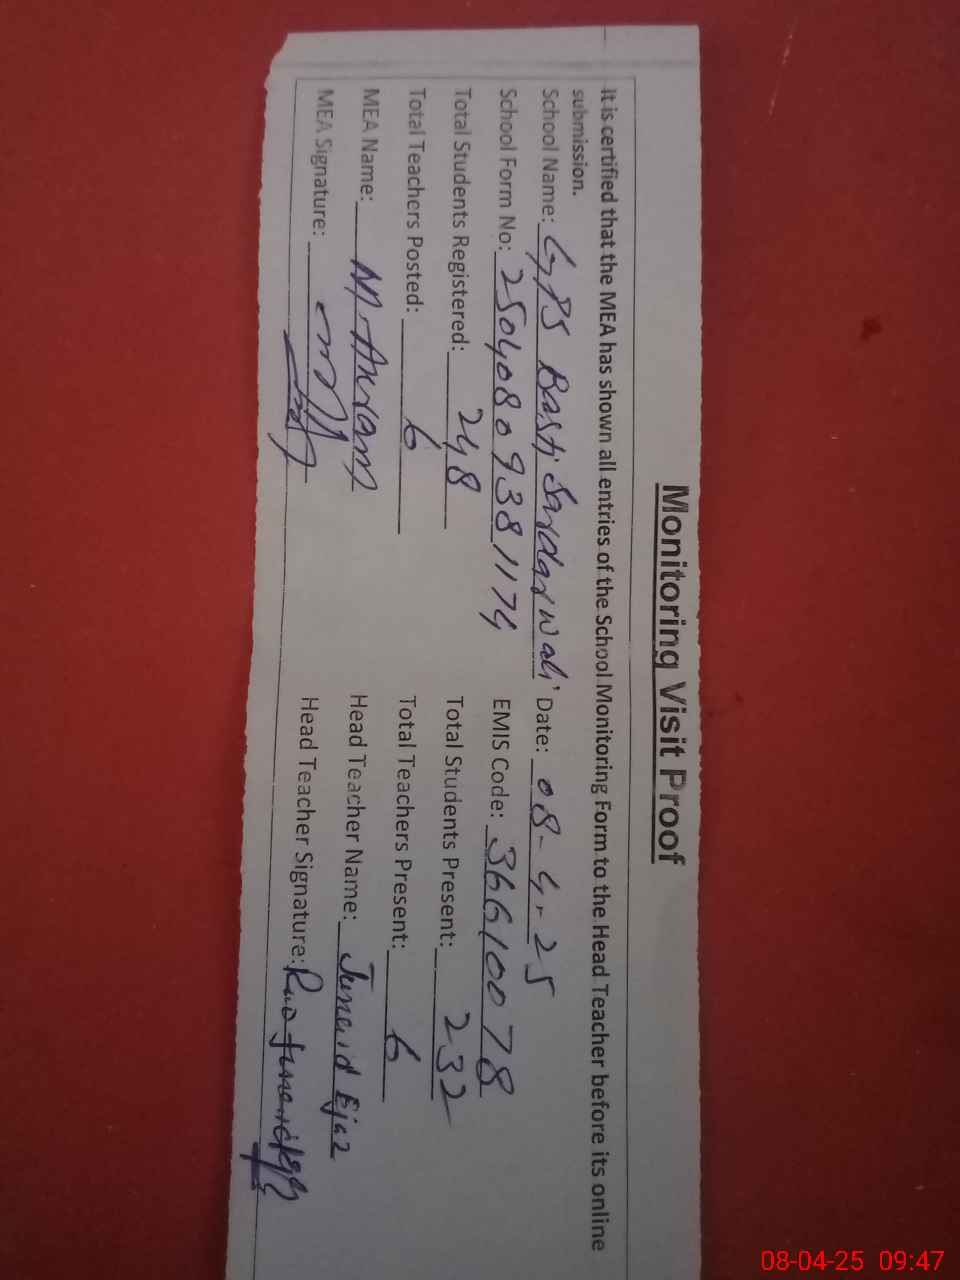 Monitoring Visit Proof
It is certified that the MEA has shown all entries of the School Monitoring Form to the Head Teacher before its online
submission.
School Name: GPS Basti Sardar wali Date: 08-4-25
School Form No: 25040809381174 EMIS Code: 36610078
Total Students Registered: 248 Total Students Present: 232
Total Teachers Posted: 6 Total Teachers Present: 6
MEA Name: M. Akram Head Teacher Name: Junaid Ejaz
MEA Signature: Head Teacher Signature: Rao Junaid
08-04-25 09:47